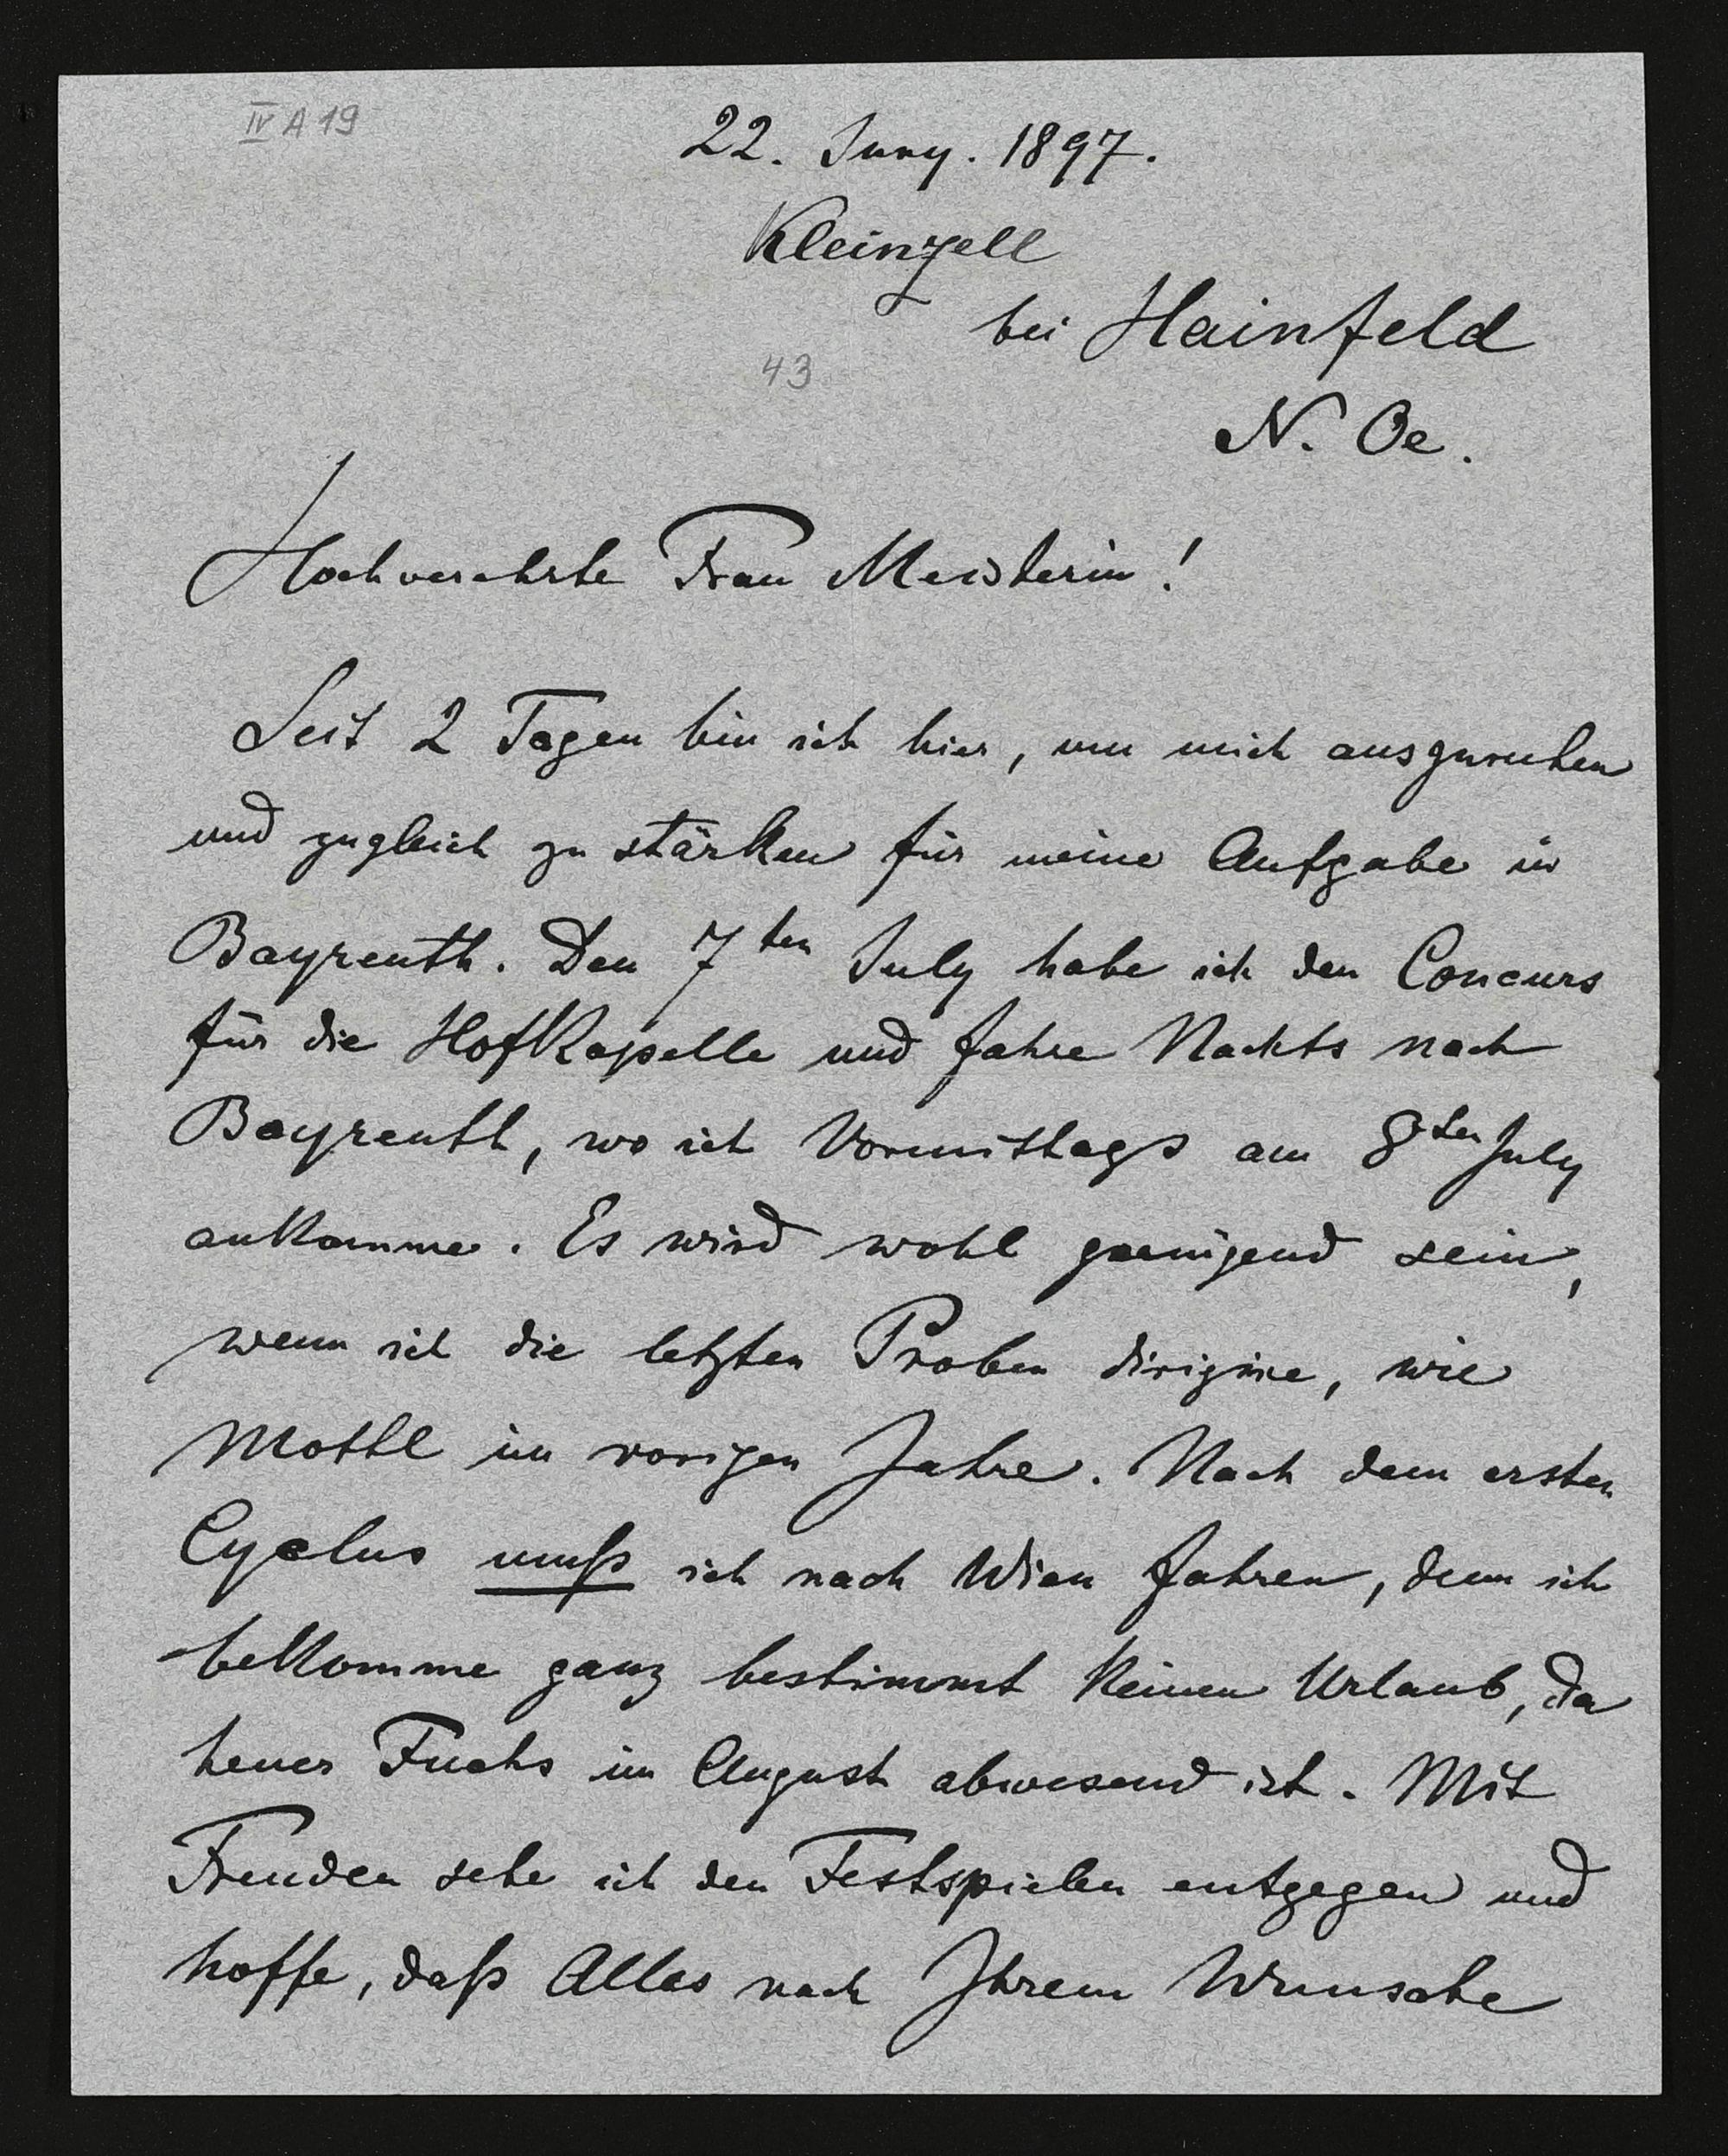 IV A 19
22. Juny. 1897.
Kleinzell
bei Hainfeld
43
N. Oe.
Hochverehrte Frau Meisterin!
Seit 2 Tagen bin ich hier, um mich auszuruhen
und zugleich zu stärken für meine Aufgabe in
Bayreuth. Den 7ten July habe ich den Concurs
für die Hofkapelle und fahre Nachts nach
Bayreuth, wo ich Vormittags am 8ten July
ankomme. Es wird wohl genügend sein,
wenn ich die letzten Proben dirigire, wie
Mottl im vorigen Jahre. Nach dem ersten
Cyclus muß ich nach Wien fahren, denn ich
bekomme ganz bestimmt keinen Urlaub, da
heuer Fuchs im August abwesend ist. Mit
Freuden sehe ich den Festspielen entgegen und
hoffe, daß Alles nach Ihrem Wunsche